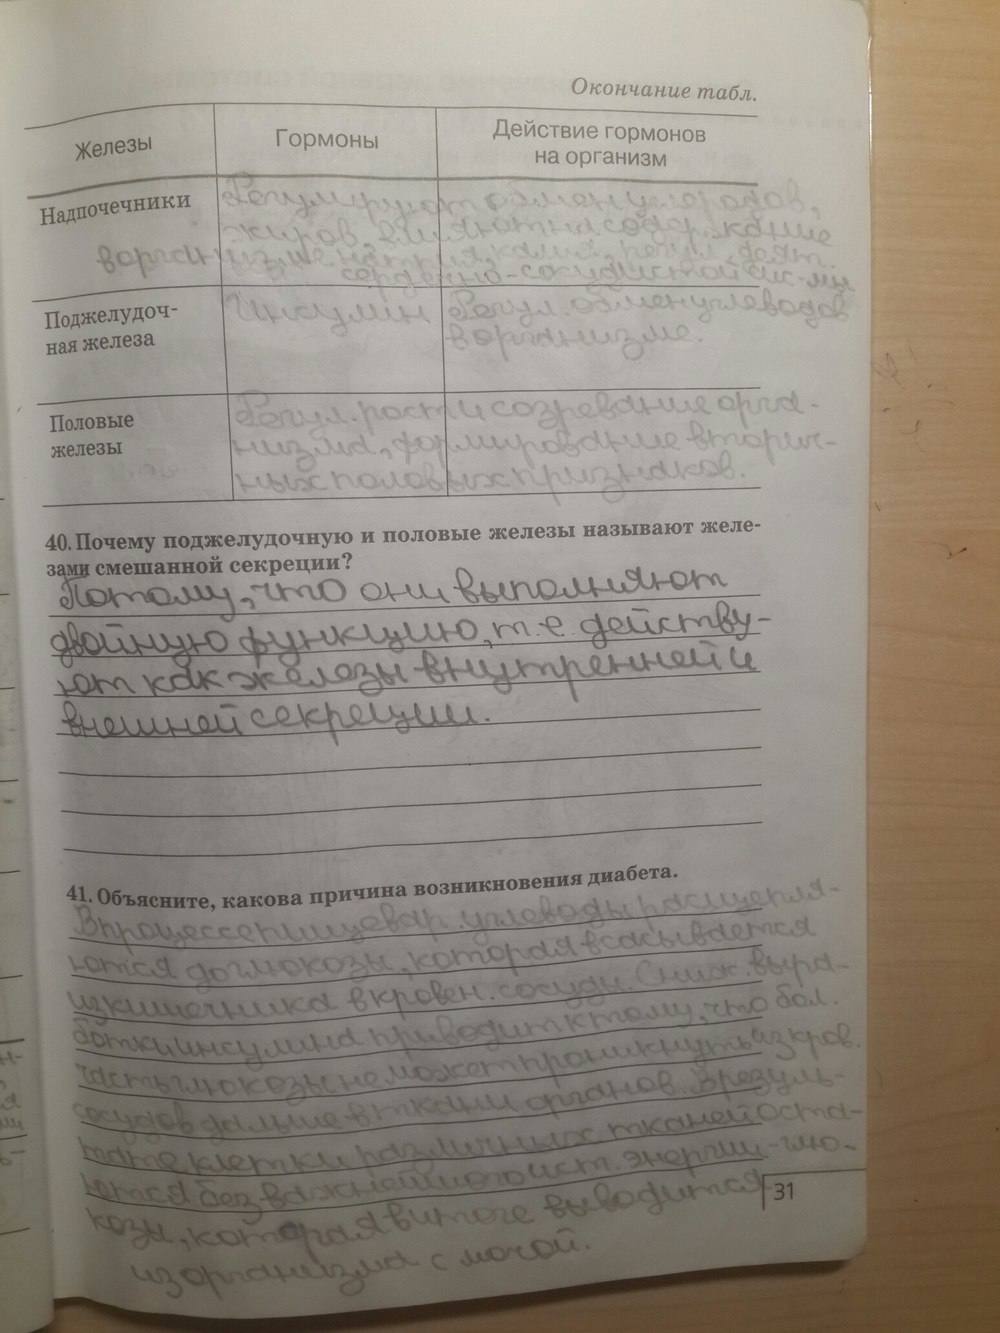 Окончание табл.
Железы
Гормоны
Действие гормонов
на организм
Надпочечники
Регулируют обмен углеводов,
жиров, влияют на содержание
в организме натрия, калия, регул. деят.
сердечно-сосудистой сис-мы
Поджелудоч-
ная железа
Инсулин
Регул. обмен углеводов
в организме.
Половые
железы
Регул. рост и созревание орга-
низма, формирование вторич-
ных половых признаков.
40. Почему поджелудочную и половые железы называют желе-
зами смешанной секреции?
Потому, что они выполняют
двойную функцию, т.е. действу-
ют как железы внутренней и
внешней секреции.
41. Объясните, какова причина возникновения диабета.
В процессе пищевар. углеводы расщепля-
ются до глюкозы, которая всасывается
из кишечника в кровен. сосуды. Сниж. выра-
ботки инсулина приводит к тому, что бол.
часть глюкозы не может проникнуть из кров.
сосудов дальше в ткани органов. В резуль-
тате клетки различных тканей оста-
ются без важнейшего ист. энергии - глю-
козы, которая в итоге выводится
из организма с мочой.
31